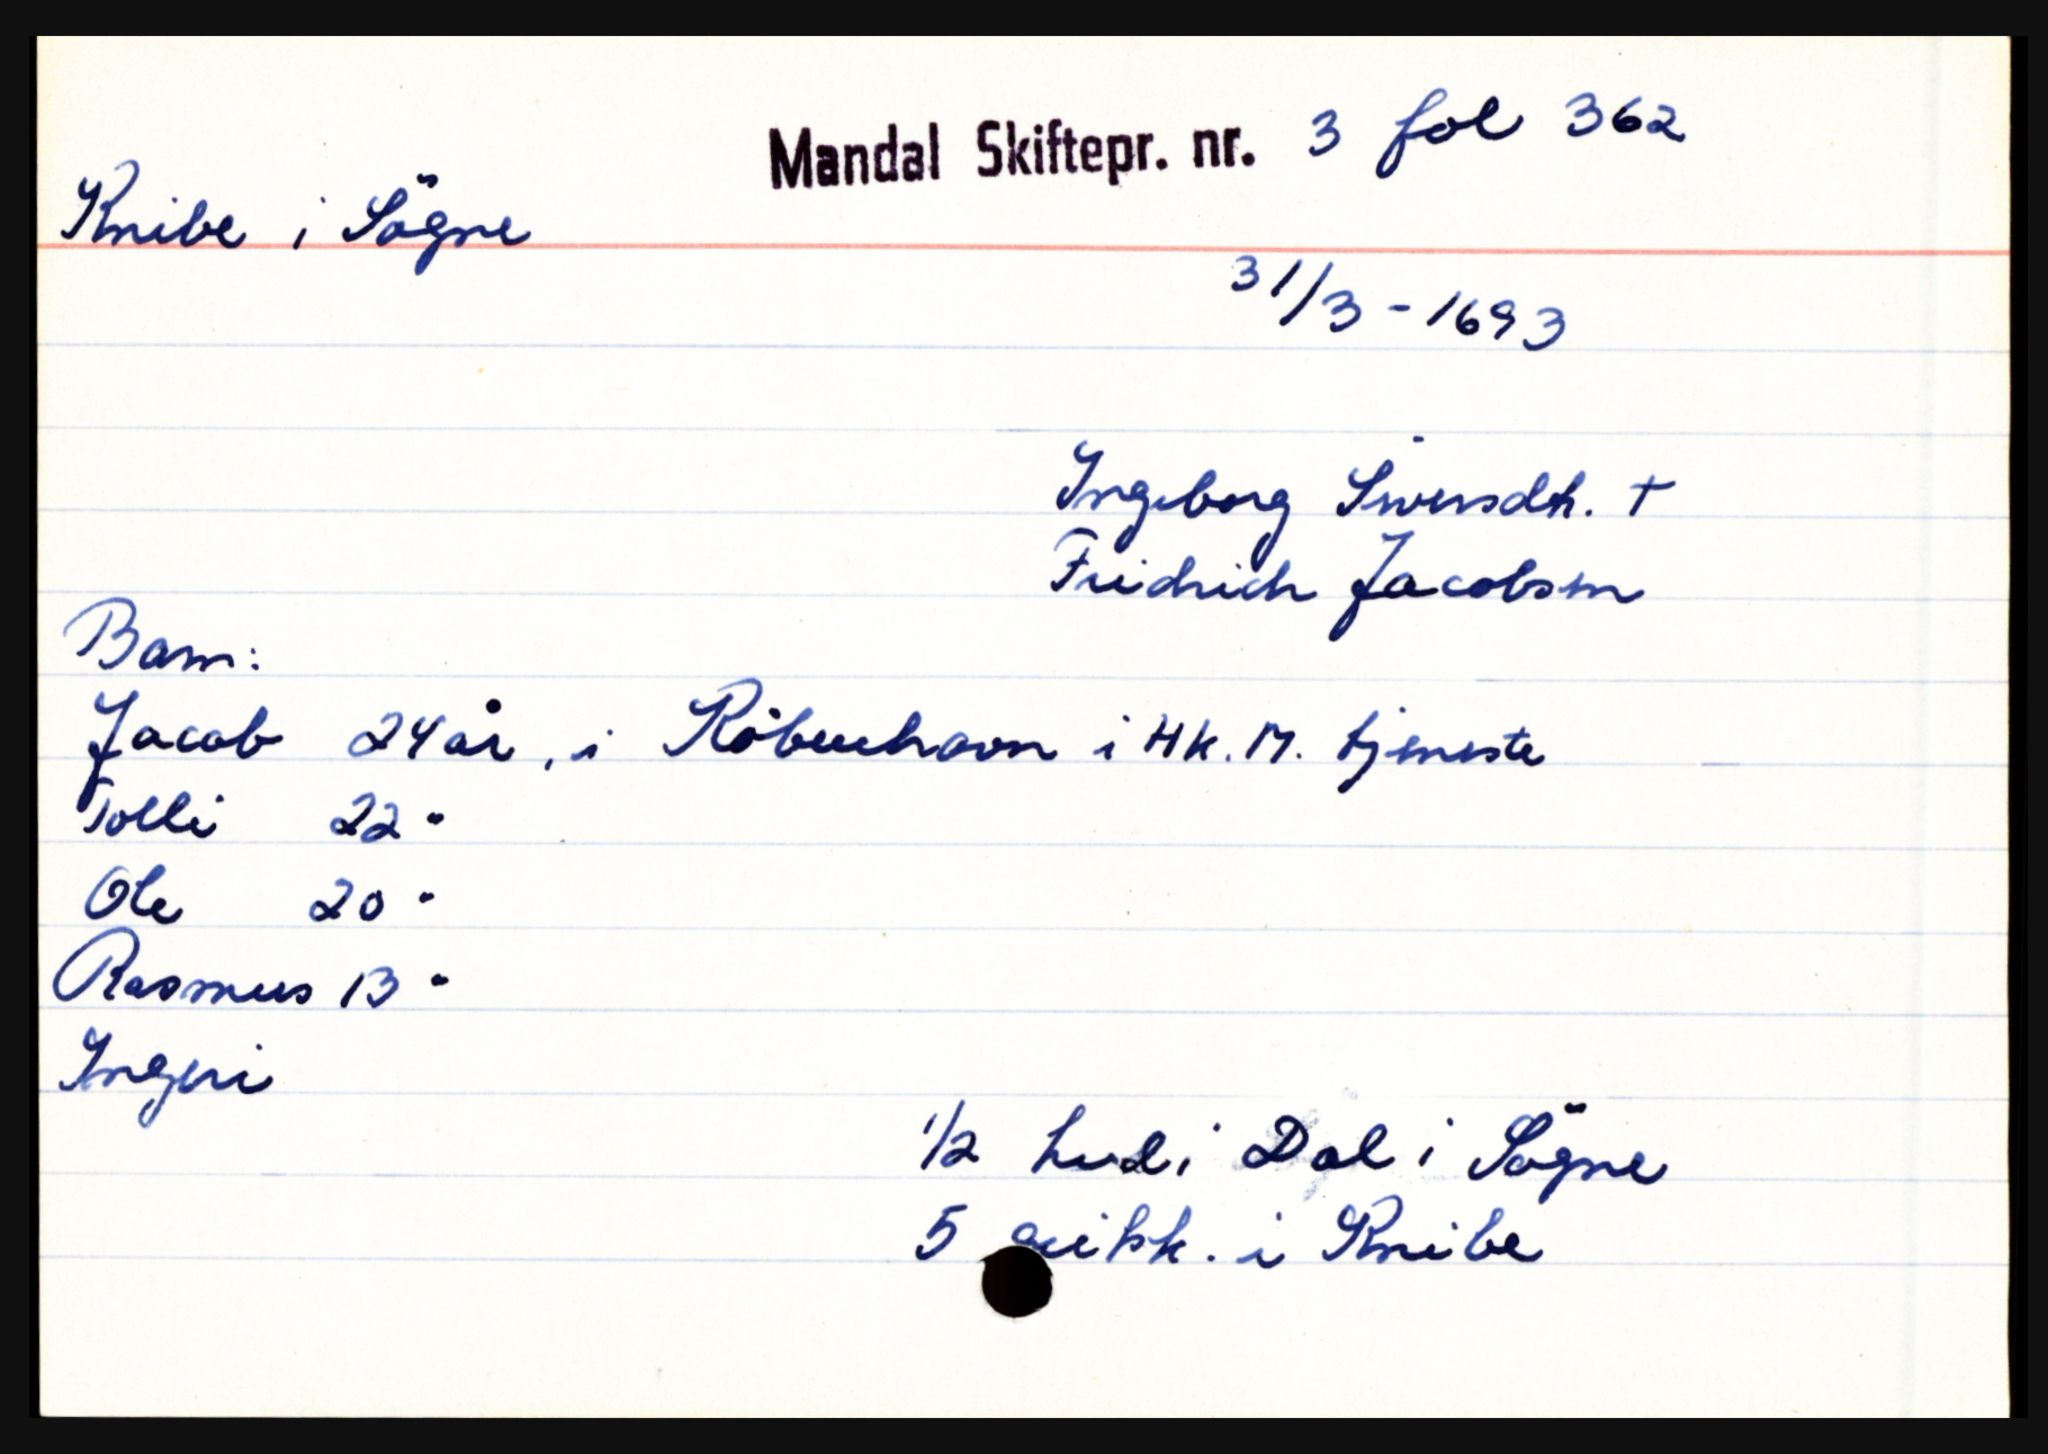 Mandal Skiftepr. nr. 3 fol 362
Knibe i Sögne
31/3 - 1693
Ingeborg Siversdtr. †
Fridrich Jacobsen
Barn:
Jacob 24 år, i Köbenhavn i Hk. M. tjeneste
Tolli 22 "
Ole 20 "
Rasmus 13 "
Ingeri
1/2 hud i Dal i Sögne
5 geitsk. i Knibe